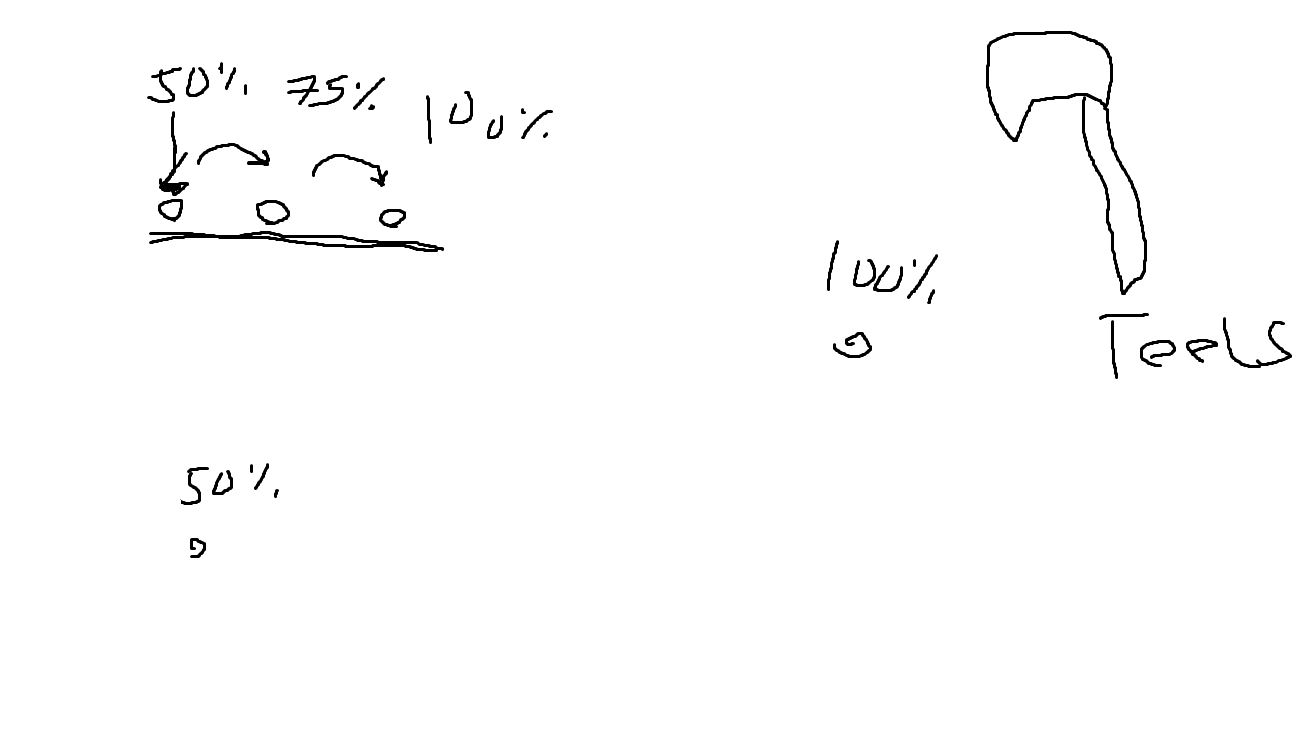 50% 75% 100%
100%
Teels
50%